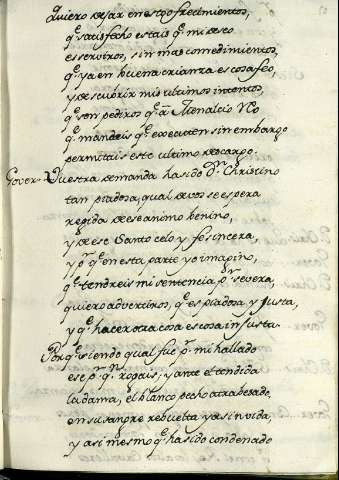 Quiero dejar en esto ofrecimientos,
q̃ satisfecho estais q̃ mi deseo
es serviros, sin mas comedimientos,
q̃ ya en buena crianza es cosa feo,
y descubrir mis ultimos intentos,
q̃ son pediros q̃ a Menalcio
q̃ mandeis q̃ executen sin embargo
permitais este ultimo descargo.
Gover.- Vuestra demanda ha sido Dⁿ. Christino
tan piadosa, qual de vos se espera
regida de ese animo benino,
y de ese Santo celo y fe sincera,
y pʳ. q̃ en esta parte yo imagino,
q̃ tendreis mi sentencia pʳ. severa,
quiero advertiros, q̃ es piadosa y justa,
y q̃ hacer otra cosa es cosa injusta.
Porq̃ siendo qual fue pʳ. mi hallado
ese pʳ. qⁿ. rogais; y ante el tendida
la dama, el blanco pecho atrabesado,
en su sangre rebuelta y a sin vida,
y asi mesmo q̃ ha sido condenado